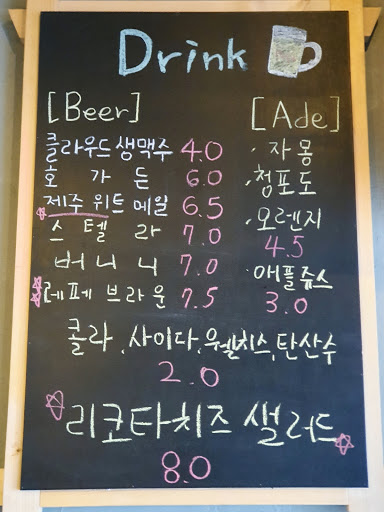 Drink
[Beer]
클라우드 생맥주 4.0
호가든 6.0
제주 위트 에일 6.5
스텔라 7.0
버니니 7.0
레페 브라운 7.5
[Ade]
· 자몽
· 청포도
· 오렌지
4.5
· 애플쥬스
3.0
콜라, 사이다, 웰치스, 탄산수
2.0
리코타치즈 샐러드
8.0